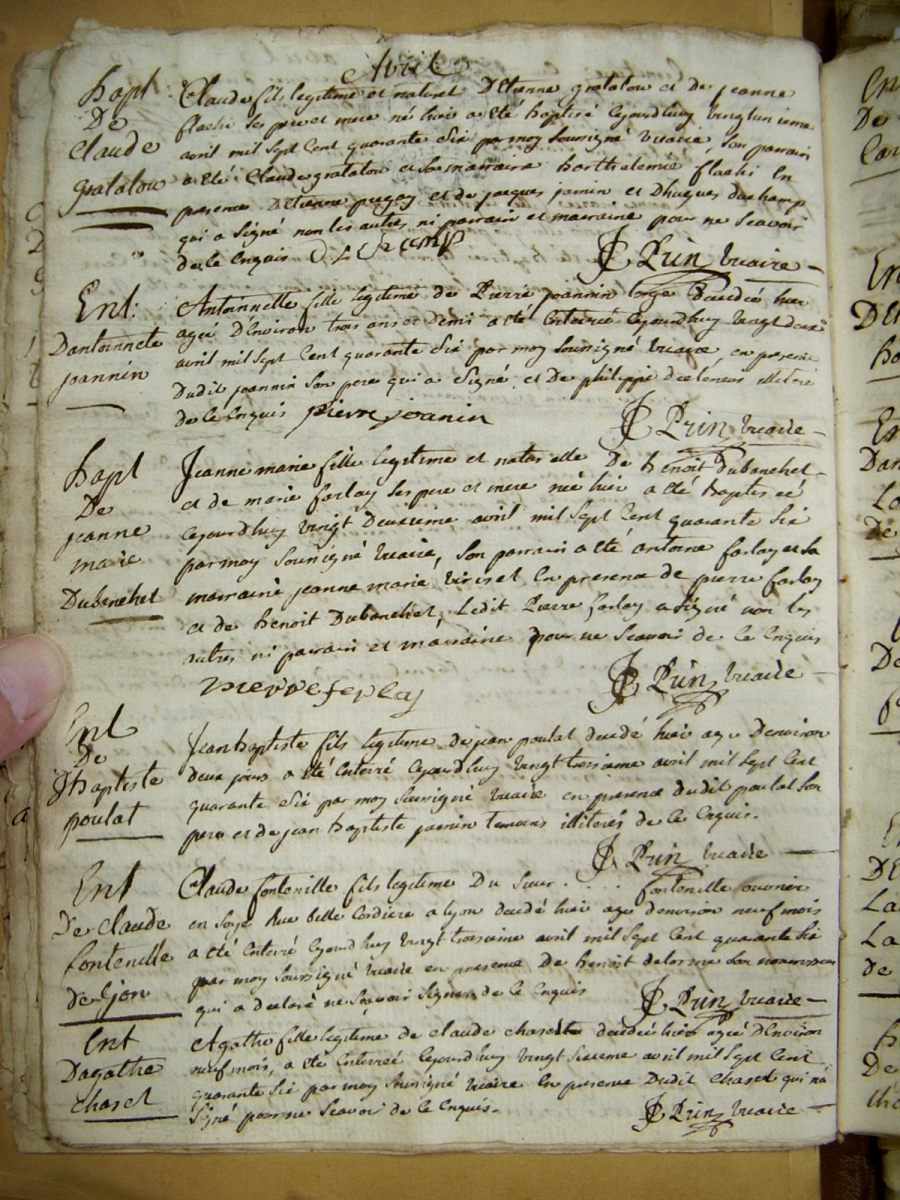 Avril
Bapt
De
Claude
gratalou
Claude fils legitime et naturel D'Etienne gratalou et de jeanne
flachi ses pere et mere né hier a eté baptisé cejourdhuy vingtunieme
avril mil sept cent quarante six par moy soussigné vicaire, son parrain
a eté Claude gratalou et sa marraine barthelemie flachi en
presence D'Etienne pugay et de jacques jamin et D'hugues duchamp
qui a signé non les autres ni parrain et marraine pour ne scavoir
de ce enquis
Prin vicaire
Ent:
Dantoinnete
joannin
Antoinnette fille legitime de Pierre joannin decedée hier
agée D'Environ trois ans et Demi a eté enterrée cejourdhuy vingt deux
avril mil sept cent quarante six par moy soussigné vicaire, en presence
Dudit joannin son pere qui a signé, et De philippe illiteré
de ce enquis pierre joanin
Prin vicaire
Bapt
De
jeanne
marie
Dubanchet
Jeanne marie fille legitime et naturelle De Benoit Dubanchet
et de marie farlay ses pere et mere née hier a eté baptisée
cejourdhuy vingt Deuxieme avril mil sept cent quarante six
par moy soussigné vicaire, son parrain a eté antoine farlay et sa
marraine jeanne marie viriset en presence de pierre farlay
et de Benoit Dubanchet, Ledit Pierre farlay a signé non les
autres ni parrain et marraine pour ne scavoir de ce enquis
pierre ferlay
Prin vicaire
Ent
De
JBaptiste
poulat
Jean baptiste fils legitime de jean poulat decedé hier agé Denviron
deux jours a eté enterré cejourdhuy vingt troisieme avril mil sept cent
quarante six par moy soussigné vicaire en presence dudit poulat son
pere et de jean baptiste jamin temoins illiterés de ce enquis.
Prin vicaire
Ent
De claude
fontenille
de Lyon
Claude fontenille fils legitime Du sieur . . . . fontenille ouvrier
en soye rue belle cordiere a lyon decedé hier agé denviron neuf mois
a eté enterré cejourdhuy vingt troisieme avril mil sept cent quarante six
par moy soussigné vicaire en presence De benoit delorme son nourrisseur
qui a declaré ne scavoir signer de ce enquis
Prin vicaire
Ent
Dagathe
charet
Agathe fille legitime de claude charet decedée hier agée D'Environ
neuf mois, a eté enterrée cejourdhuy vingt sixieme avril mil sept cent
quarante six par moy soussigné vicaire en presence Dudit charet qui n'a
signé pour ne scavoir de ce enquis.
Prin vicaire